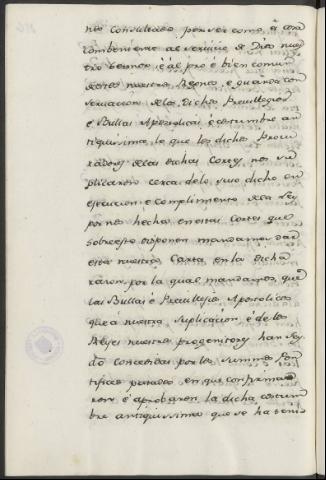 nos consultado, por ser como es cosa
combeniente al servicio de Dios nues
tro Señor, è al pro è bien comun
de estos nuestros Reynos, e guarda con
servacion de los dichos Previllegios
è Bullas Apostolicas è costumbre an
tiquissima, lo que los dichos Procu
radores de las dichas Cortes nos su
plicaron cerca de lo suso dicho en
execucion è complimento de la Ley
por nos hecha en estas Cortes que
sobre esto disponen mandamos dar
esta nuestra Carta en la dicha
razon por la qual mandamos, que
las Bullas è Previllegios Apostolicos
que à nuestra suplicacion è de los
Reyes nuestros progenitores han sey
do concedidas por los summos Pon
tifices pasados, en que confirma
ron è aprobaron la dicha costum
bre antiquissima que se ha tenido